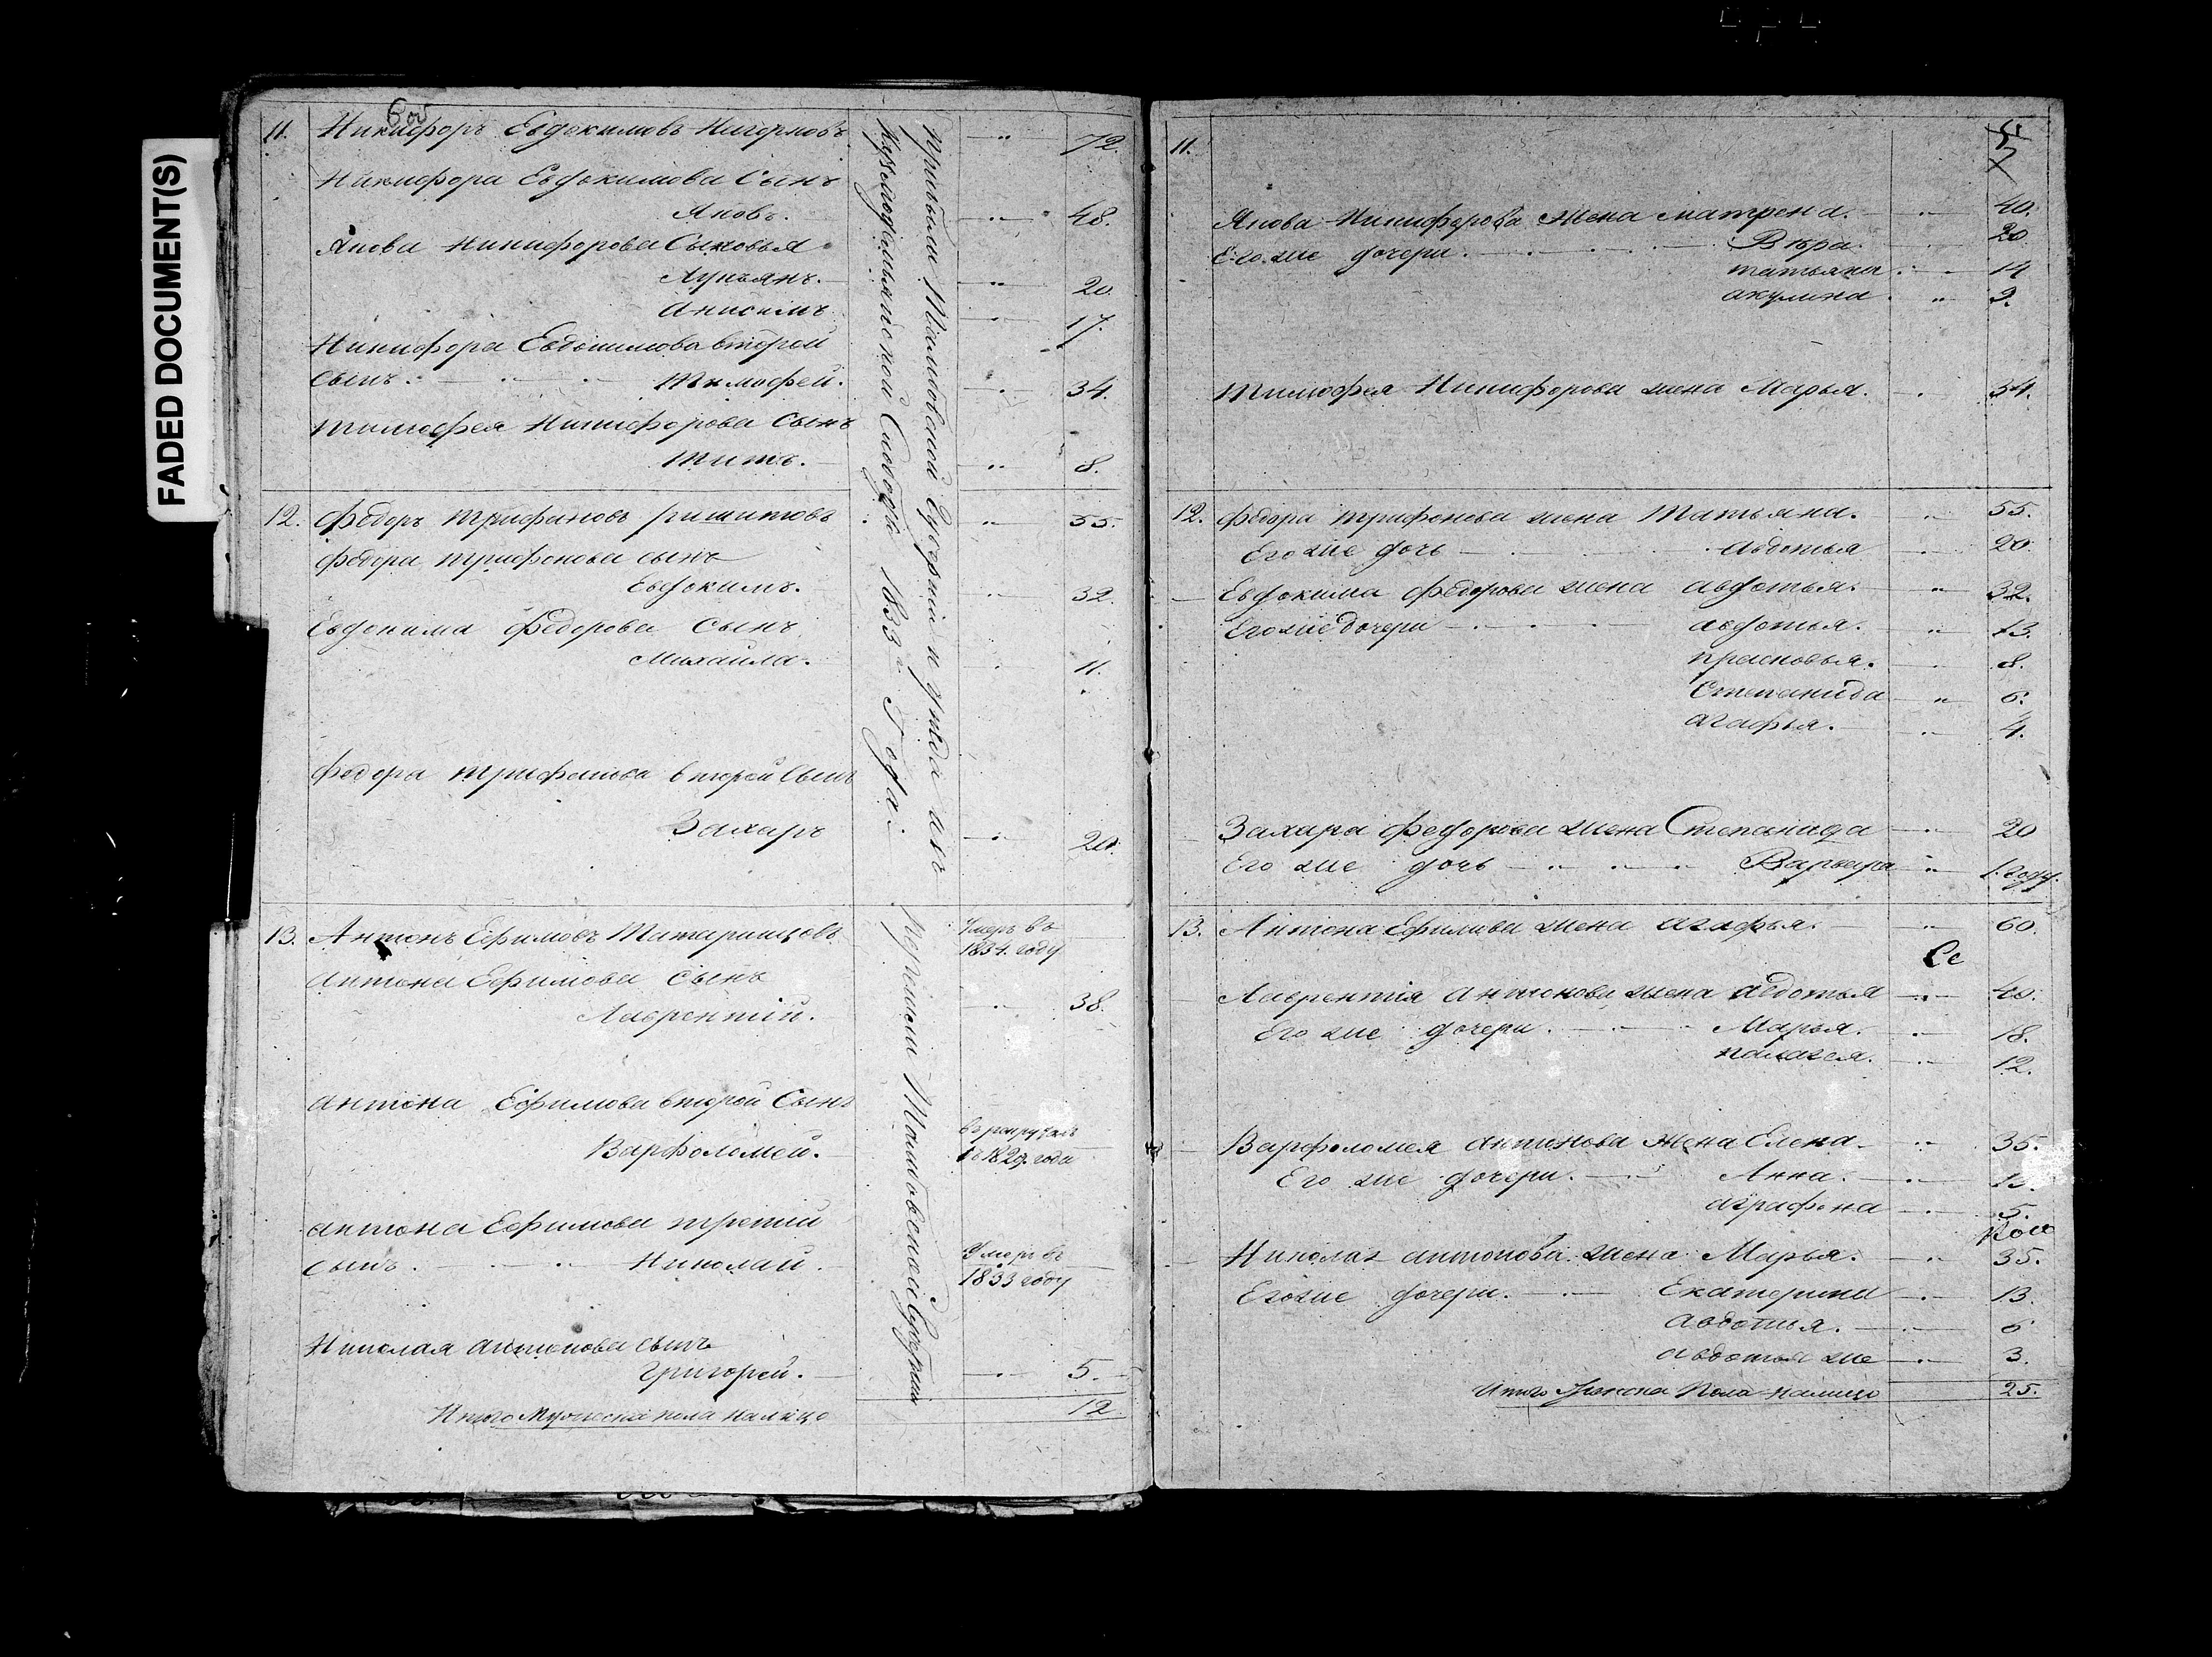 FADED DOCUMENT(S)
6 об
11. Никифоръ Евдокимовъ 72.
Никифора Евдокимова Сынъ
Яковъ. 48.
Якова Никифорова Сыновья
Лукьянъ. 20.
Анисимъ 17.
Никифора Евдокимова второй
сынъ. Тимофей. 34.
Тимофея Никифорова Сынъ
Титъ. 8.
12. Федоръ Трифановъ 55.
Федора Трифонова сынъ
Евдокимъ. 32.
Евдокима Федорова Сынъ
Михаила. 11.
Федора Трифонова второй Сынъ
Захаръ 20.
прибыли Тамбовской Губерніи и уѣзда изъ
Слободы 1833го Года
13. Антонъ Ефимовъ Татаринцовъ Умеръ въ
1834. году
Антона Ефимова сынъ
Лаврентій. 38.
Антона Ефимова второй Сынъ
Варфоломей. въ рекрутахъ
съ 1829 года
Антона Ефимова третій
сынъ. Николай. Умеръ въ
1833 году
Николая Антонова сынъ
Григорей. 5.
перешли Тамбовской Губерніи
Итого Мужеска пола налицо 12
7
11.
Якова Никифорова Жена Матрена. 40.
Его же дочери. Вѣра. 20
татьяна. 14
акулина. 9.
Тимофея Никифорова жена Марья. 34.
12. Федора трифонова жена Татьяна. 55.
Его же дочь Авдотья 20
Евдокима Федорова жена авдотья. 32.
Его же дочери авдотья. 13.
прасковья. 8.
Степанида 6.
агафья. 4.
Захара Федорова жена Степанида 20
Его же дочь Варвара 1. году.
13. Антона Ефимова жена агафья. 60.
Се
Лаврентія Антонова жена авдотья 40.
Его же дочери. Марья. 18.
палагея. 12.
Варфоломея антонова жена Елена. 35.
Его же дочери. Анна.
аграфена 5.
Николая антонова жена Марья. 35.
Его же дочери. Екатерина 13.
авдотья. 6
авдотья же 3.
Итого Женска Пола налицо 25.